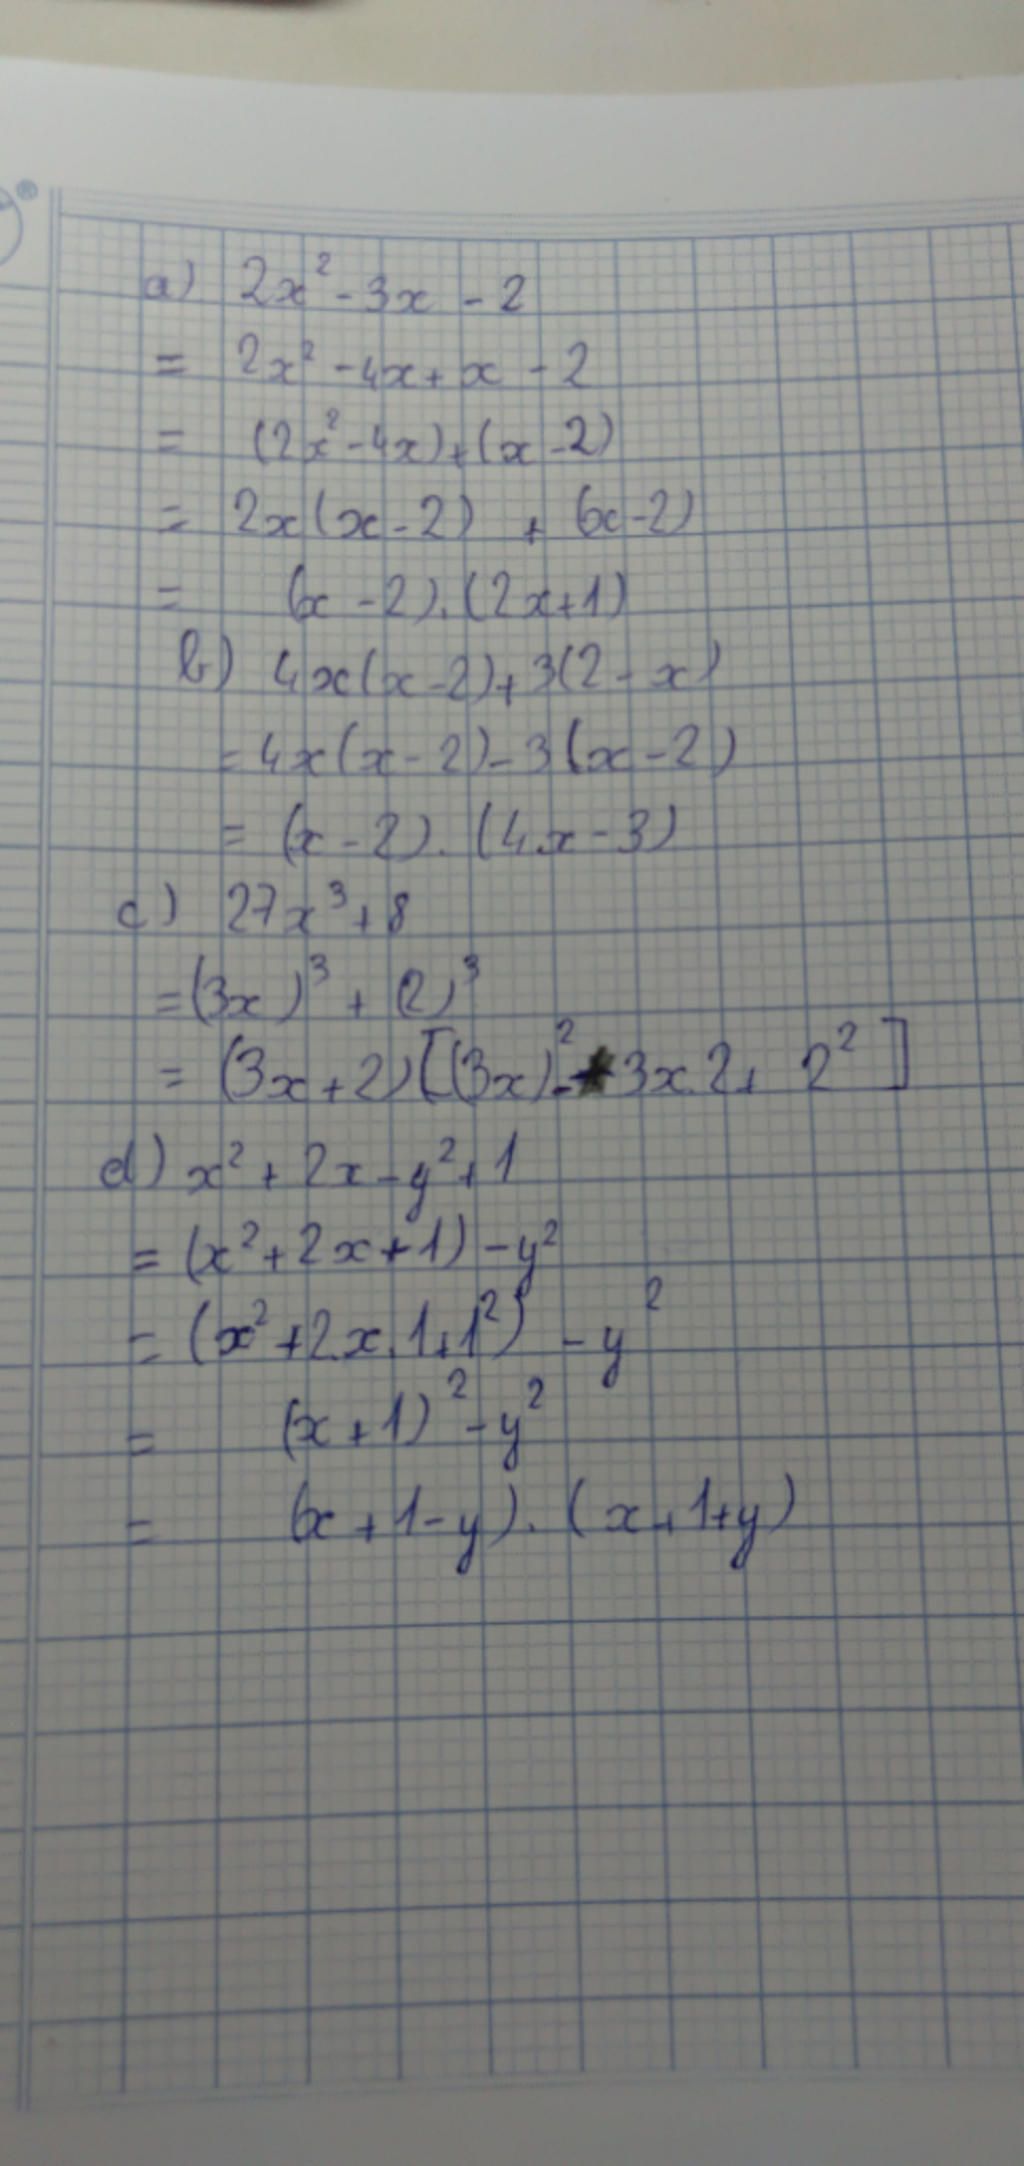 ®
a) 2x² - 3x - 2
= 2x² - 4x + x - 2
= (2x² - 4x) + (x - 2)
= 2x(x - 2) + (x - 2)
= (x - 2).(2x + 1)
b) 4x(x - 2) + 3(2 - x)
= 4x(x - 2) - 3(x - 2)
= (x - 2).(4x - 3)
c) 27x³ + 8
= (3x)³ + (2)³
= (3x + 2)[(3x)² - 3x.2 + 2²]
d) x² + 2x - y² + 1
= (x² + 2x + 1) - y²
= (x² + 2.x.1 + 1²) - y²
= (x + 1)² - y²
= (x + 1 - y).(x + 1 + y)